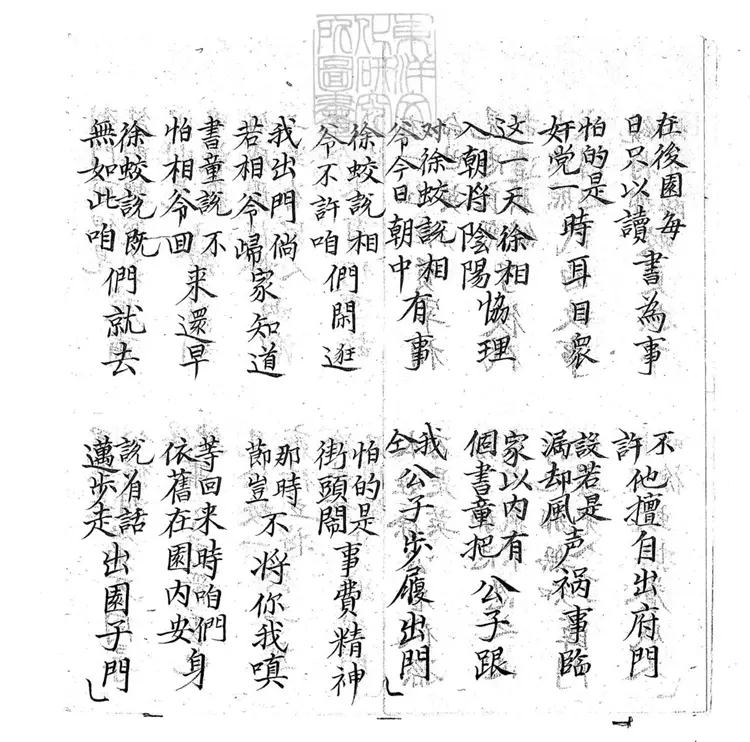 東洋文化研究所圖書
在後園每日只以讀書為事
不許他擅自出府門
怕的是奸党一時耳目衆
設若是漏却風声禍事臨
这一天徐相入朝將陰陽恊理
家以内有個書童把公子跟
对徐蛟說相爷今日朝中有事
我仝公子步履出門
徐蛟說相爷不許咱們閑逛
怕的是街頭鬧事費精神
我出門倘若相爷歸家知道
那時節豈不將你我嗔
書童說不怕相爷回来還早
等回来時咱們依舊在園内安身
徐蛟說既無如此咱們就去
說有話邁步走出園子門